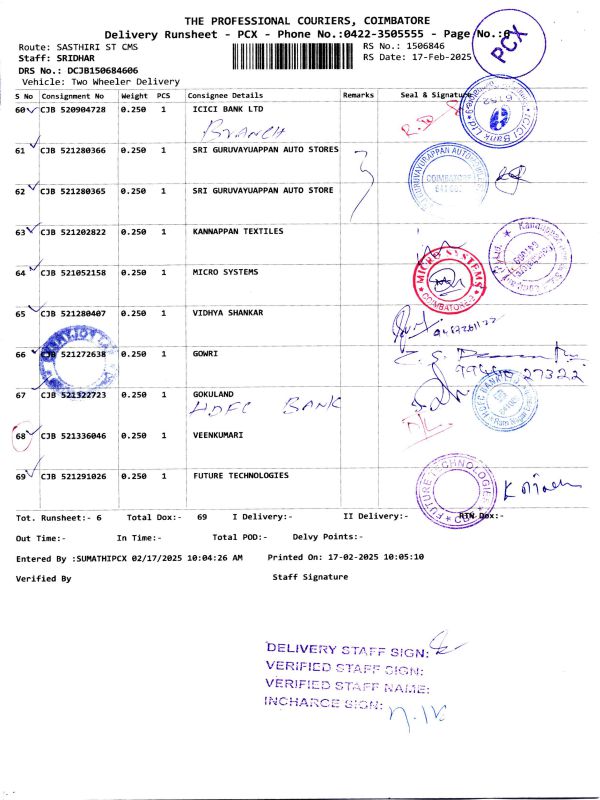 THE PROFESSIONAL COURIERS, COIMBATORE
Delivery Runsheet - PCX - Phone No.:0422-3505555 - Page No.:6
PCX
Route: SASTHIRI ST CMS
RS No.: 1506846
Staff: SRIDHAR
RS Date: 17-Feb-2025
DRS No.: DCJB150684606
Vehicle: Two Wheeler Delivery
S No Consignment No Weight PCS Consignee Details Remarks Seal & Signature
60 CJB 520904728 0.250 1 ICICI BANK LTD
BRANCH
ICICI Bank Ltd
61 CJB 521280366 0.250 1 SRI GURUVAYUAPPAN AUTO STORES
COIMBATORE
62 CJB 521280365 0.250 1 SRI GURUVAYUAPPAN AUTO STORE
63 CJB 521202822 0.250 1 KANNAPPAN TEXTILES
64 CJB 521052158 0.250 1 MICRO SYSTEMS
MICRO SYSTEMS
COIMBATORE-2
65 CJB 521280407 0.250 1 VIDHYA SHANKAR
66 CJB 521272638 0.250 1 GOWRI
67 CJB 521322723 0.250 1 GOKULAND
HDFC BANK
HDFC BANK
68 CJB 521336046 0.250 1 VEENKUMARI
69 CJB 521291026 0.250 1 FUTURE TECHNOLOGIES
FUTURE TECHNOLOGIES
Tot. Runsheet:- 6 Total Dox:- 69 I Delivery:- II Delivery:- RTN Dox:-
Out Time:- In Time:- Total POD:- Delvy Points:-
Entered By :SUMATHIPCX 02/17/2025 10:04:26 AM Printed On: 17-02-2025 10:05:10
Verified By Staff Signature
DELIVERY STAFF SIGN:
VERIFIED STAFF SIGN:
VERIFIED STAFF NAME:
INCHARGE SIGN: